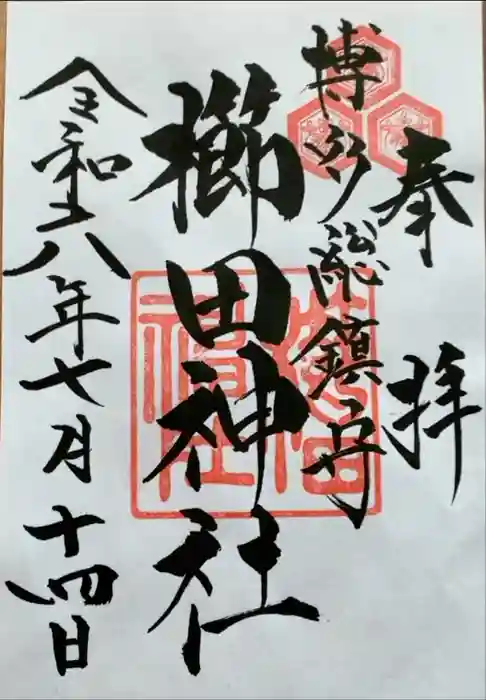 奉拝
博多総鎮守
櫛田神社
令和六年七月十四日